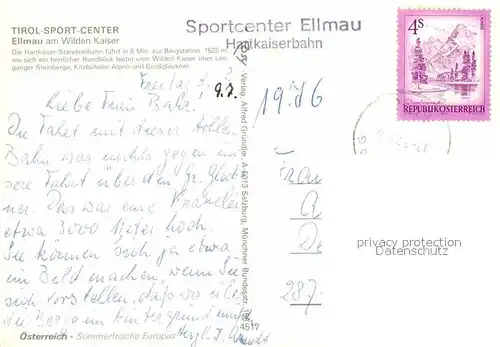 TIROL-SPORT-CENTER
Ellmau am Wilden Kaiser
Die Hartkaiser-Standseilbahn führt in 6 Min. zur Bergstation 1525 m
wo sich ein herrlicher Rundblick bietet vom Wilden Kaiser über Lan-
ganger Steinberge, Kitzbühler Alpen und Großglockner.
Sportcenter Ellmau
Hartkaiserbahn
4S
REPUBLIK ÖSTERREICH
9.7.
1976
Liebe Frau
Die Fahrt mit dieser tollen
Bahn war nichts gegen un
sere Fahrt über den Gr. Glock
ner. Das war eine
etwa 3000 Meter hoch.
Sie können sich ja etwa
im Bild machen, wenn Sie
sich vorstellen, daß wir über
die Berge im Hintergrund
Herzl.
Verlag Alfred Gründler, A-5013 Salzburg, Münchner Bundesstr.
4517
Frau
A
De
287
privacy protection
Datenschutz
Österreich - Sommerfrische Europas